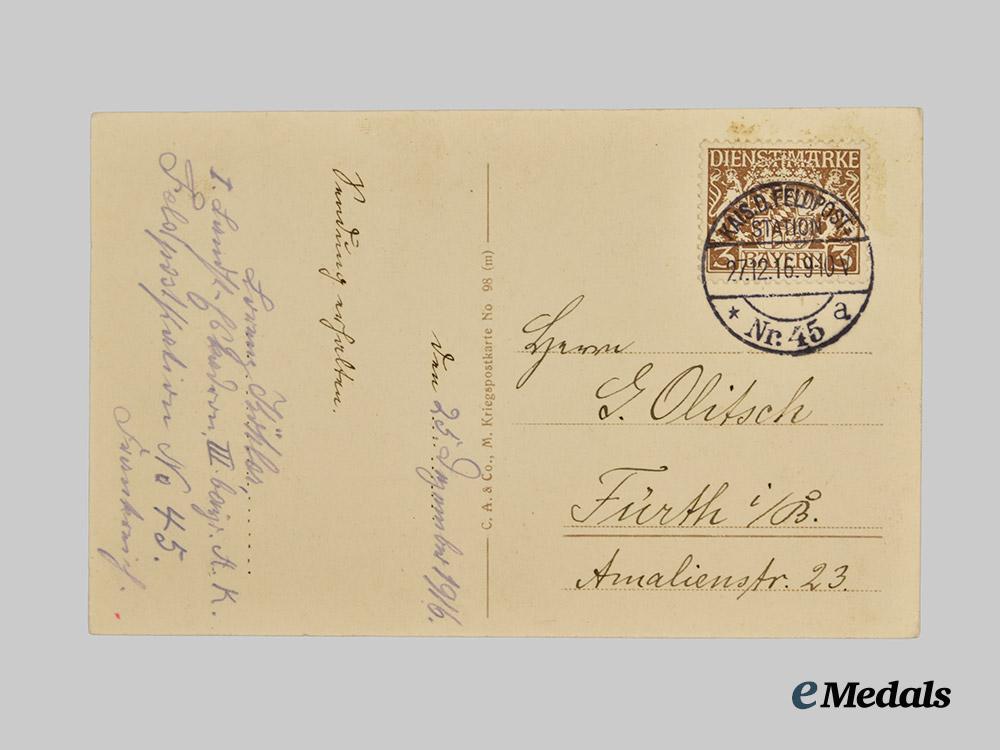 Sendung erhalten.
den 25. Dezember 1916.
1. Landst. Eskadron, III. bayr. A. K.
Feldpoststation No 45.
Frankreich.
C. A. & Co., M. Kriegspostkarte No 98 (m)
DIENSTMARKE
3 BAYERN 3
KAIS. D. FELDPOST-
STATION
27.12.16. 9-10 V
* Nr. 45 a
Herrn
G. Olitsch
Fürth i/B.
Amalienstr. 23.
eMedals